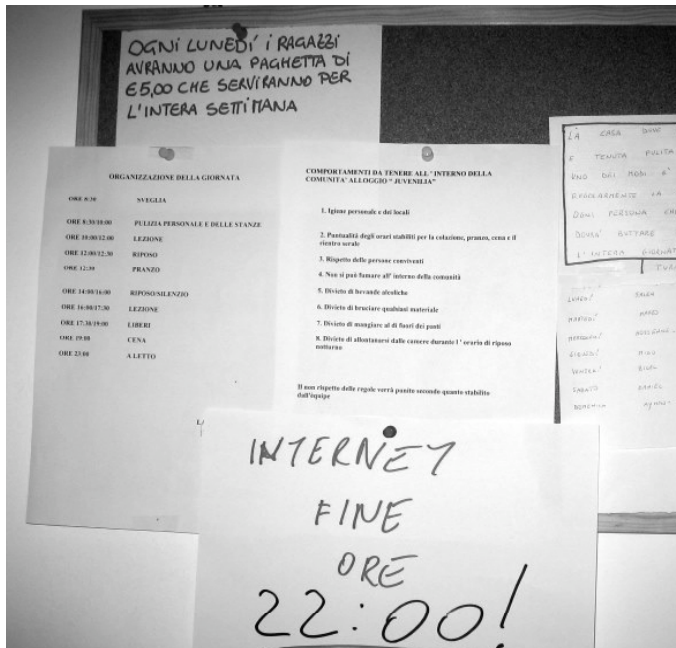 OGNI LUNEDI' I RAGAZZI
AVRANNO UNA PAGHETTA DI
€5,00 CHE SERVIRANNO PER
L'INTERA SETTIMANA
ORGANIZZAZIONE DELLA GIORNATA
ORE 8:30 SVEGLIA
ORE 8:30/10:00 PULIZIA PERSONALE E DELLE STANZE
ORE 10:00/12:00 LEZIONE
ORE 12:00/12:30 RIPOSO
ORE 12:30 PRANZO
ORE 14:00/16:00 RIPOSO/SILENZIO
ORE 16:00/17:30 LEZIONE
ORE 17:30/19:00 LIBERI
ORE 19:00 CENA
ORE 23:00 A LETTO
COMPORTAMENTI DA TENERE ALL'INTERNO DELLA
COMUNITA' ALLOGGIO "JUVENILIA"
1. Igiene personale e dei locali
2. Puntualità degli orari stabiliti per la colazione, pranzo, cena e il
rientro serale
3. Rispetto delle persone conviventi
4. Non si può fumare all' interno della comunità
5. Divieto di bevande alcoliche
6. Divieto di bruciare qualsiasi materiale
7. Divieto di mangiare al di fuori dei pasti
8. Divieto di allontanarsi dalle camere durante l ' orario di riposo
notturno
Il non rispetto delle regole verrà punito secondo quanto stabilito
dall'équipe
LA CASA DOVE
E TENUTA PULITA
UNO DEI MODI E'
REGOLARMENTE LA
OGNI PERSONA
DOVRA' BUTTARE
L'INTERA GIORNAT
LUNEDI'
MARTEDI'
MERCOLEDI'
GIOVEDI'
VENERDI'
SABATO DANIEL
DOMENICA
INTERNET
FINE
ORE
22:00!